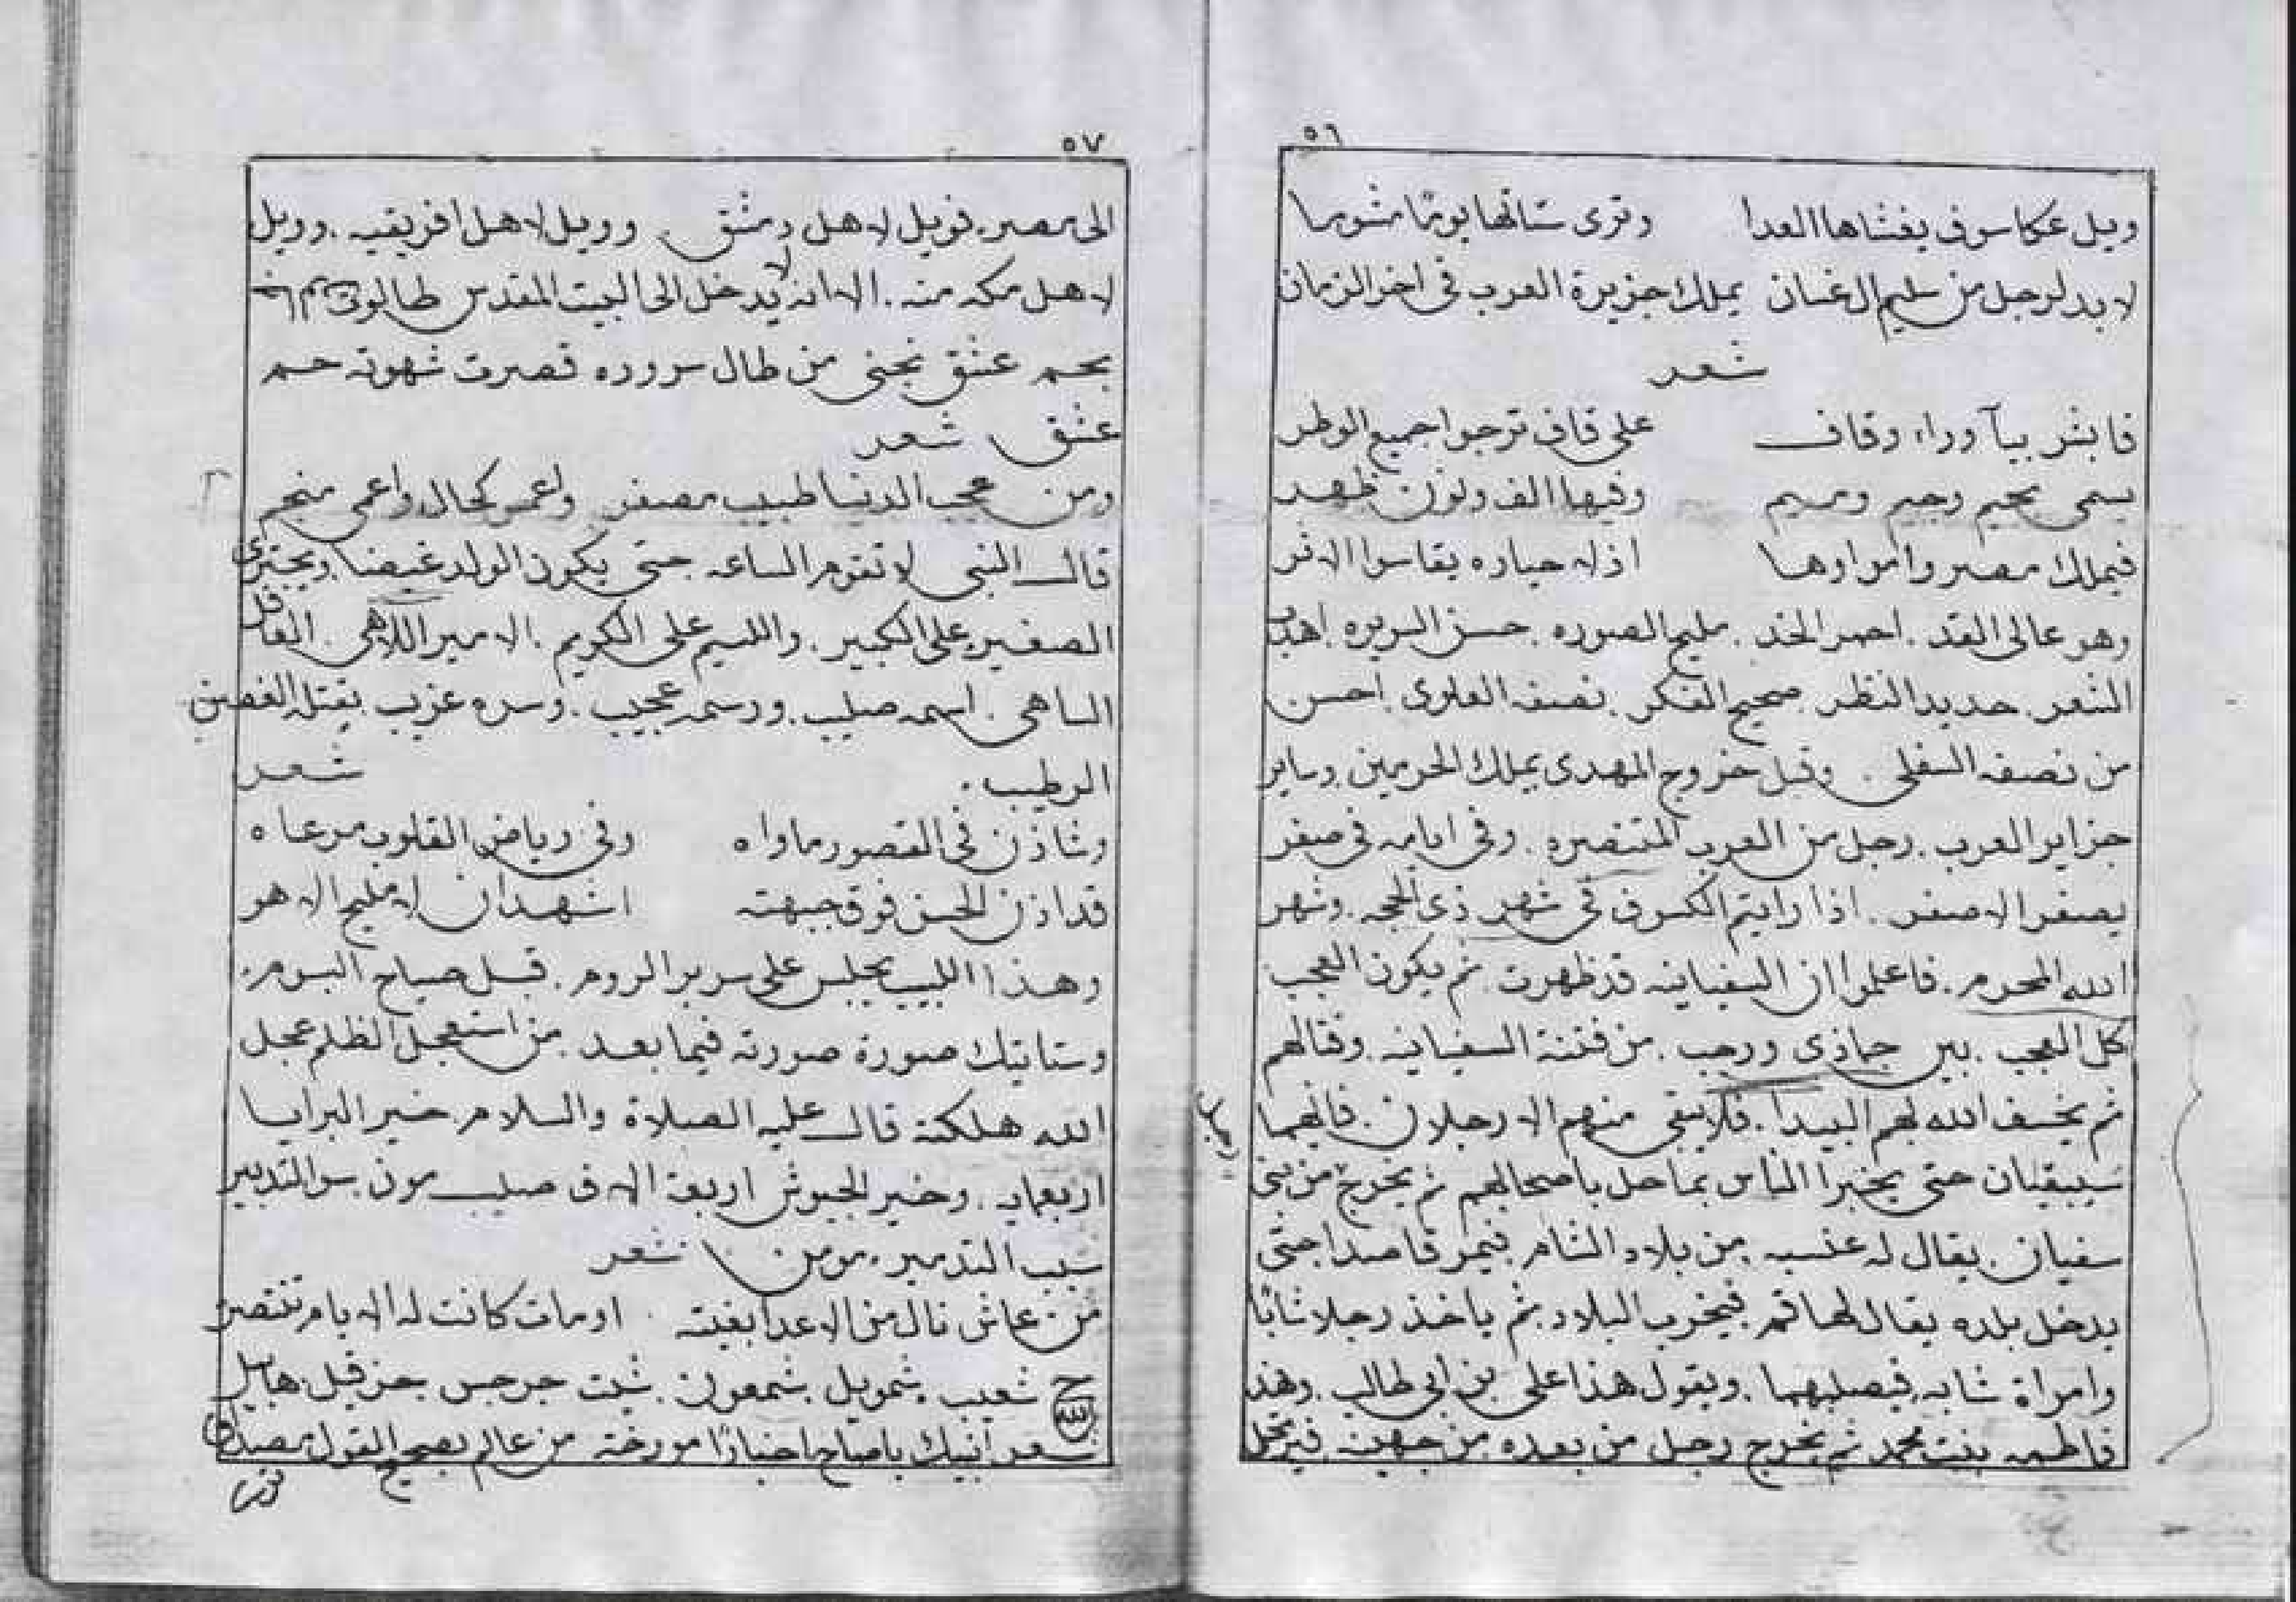 ٥٦
ويل عكا سوف يغشاها العدا وترى سانها يوما مشوما
لا بد لرجل من سليم ال غسان يملك جزيرة العرب في اخر الزمان
شعر
فابشر بيآ وراء وقاف على قاف ترجوا جميع الوطر
يسمى بحيم وجيم وميم وفيها الف ونون ظهر
فيملك مصر وامرارها اذله حياره يقاسوا الافر
وهو عالي القد . احمر الخد . مليح الصوره . حسن السريره . اهدب
الشعر . حديد النظر . صحيح الفكر . نصفه العلوى . احسن
من نصفه السفلى . وقبل خروج المهدى يملك الحرمين وساير
جزاير العرب . رجل من العرب المتنصره . وفى ايامه في صفر
يصفر الاصفر . اذا رايتم الكسوف في شهر ذى الحجه . وشهر
الله المحرم . فاعلموا ان السفيانيه قد ظهرت . ثم يكون العجب
كل العجب . بين جماذى ورجب . من فتنة السفيانيه . وقتالهم
ثم يخسف الله بهم البيدا . فلا يبقى منهم الا رجلان . فانهما
سيبقيان حتى يخبرا الناس بما حل باصحابهم ثم يخرج من بنى
سفيان . يقال له عنبسه . من بلاد الشام فيمر قاصدا حتى
يدخل بلده يقال لها قم فيخرب البلاد ثم ياخذ رجلا شابا
وامراة شابه فيصلبهما . ويقول هذا على بن ابى طالب . وهذه
فاطمه بنت محمد ثم يخرج رجل من بعده من جهينه فيرحل
٥٧
الى مصر . فويل لاهل دمشق . وويل لاهل افريقيه . وويل
لاهل مكه منه . الا انه لا يدخل الى البيت المقدس طالوتى
بحم عشق نجنى من طال سروره قصرت شهوته حم
عشق شعر
ومن عجب الدنيا طبيب مصفر واعمى كحال واعمى منجم
قال النبى لا تقوم الساعه حتى يكون الولد غيضا . ويجترى
الصغير على الكبير . واللئيم على الكريم . الامير اللاهى . الغافل
الساهى . اسمه صليب . ورسمه عجيب . وسره غريب . يقتله الغصين
الرطيب . شعر
وشاذن في القصور ماواه وفي رياض القلوب مرعاه
قد اذن الحسن فوق جبهته اشهد ان لا مليح الا هو
وهذا اللبيب يجلس على سرير الروم . قبل صياح البوم .
وستاتيك صورة صورته فيما بعد . من استعجل الظلم عجل
الله هلكته قال عليه الصلاة والسلام خير البرايا
اربعمايه . وخير الجيوش اربعة الاف صليب مون سو التدبير
سبب التدمير . مومن شعر
من عاش نال من الاعدا بغيته اومات كانت له الايام تنتصر
شعيب شمويل شمعون شيت جرجس حزقيل هابيل
شعر انبيك ياصاح اخبارا مورخة من عالم بصحيح القول مصداق